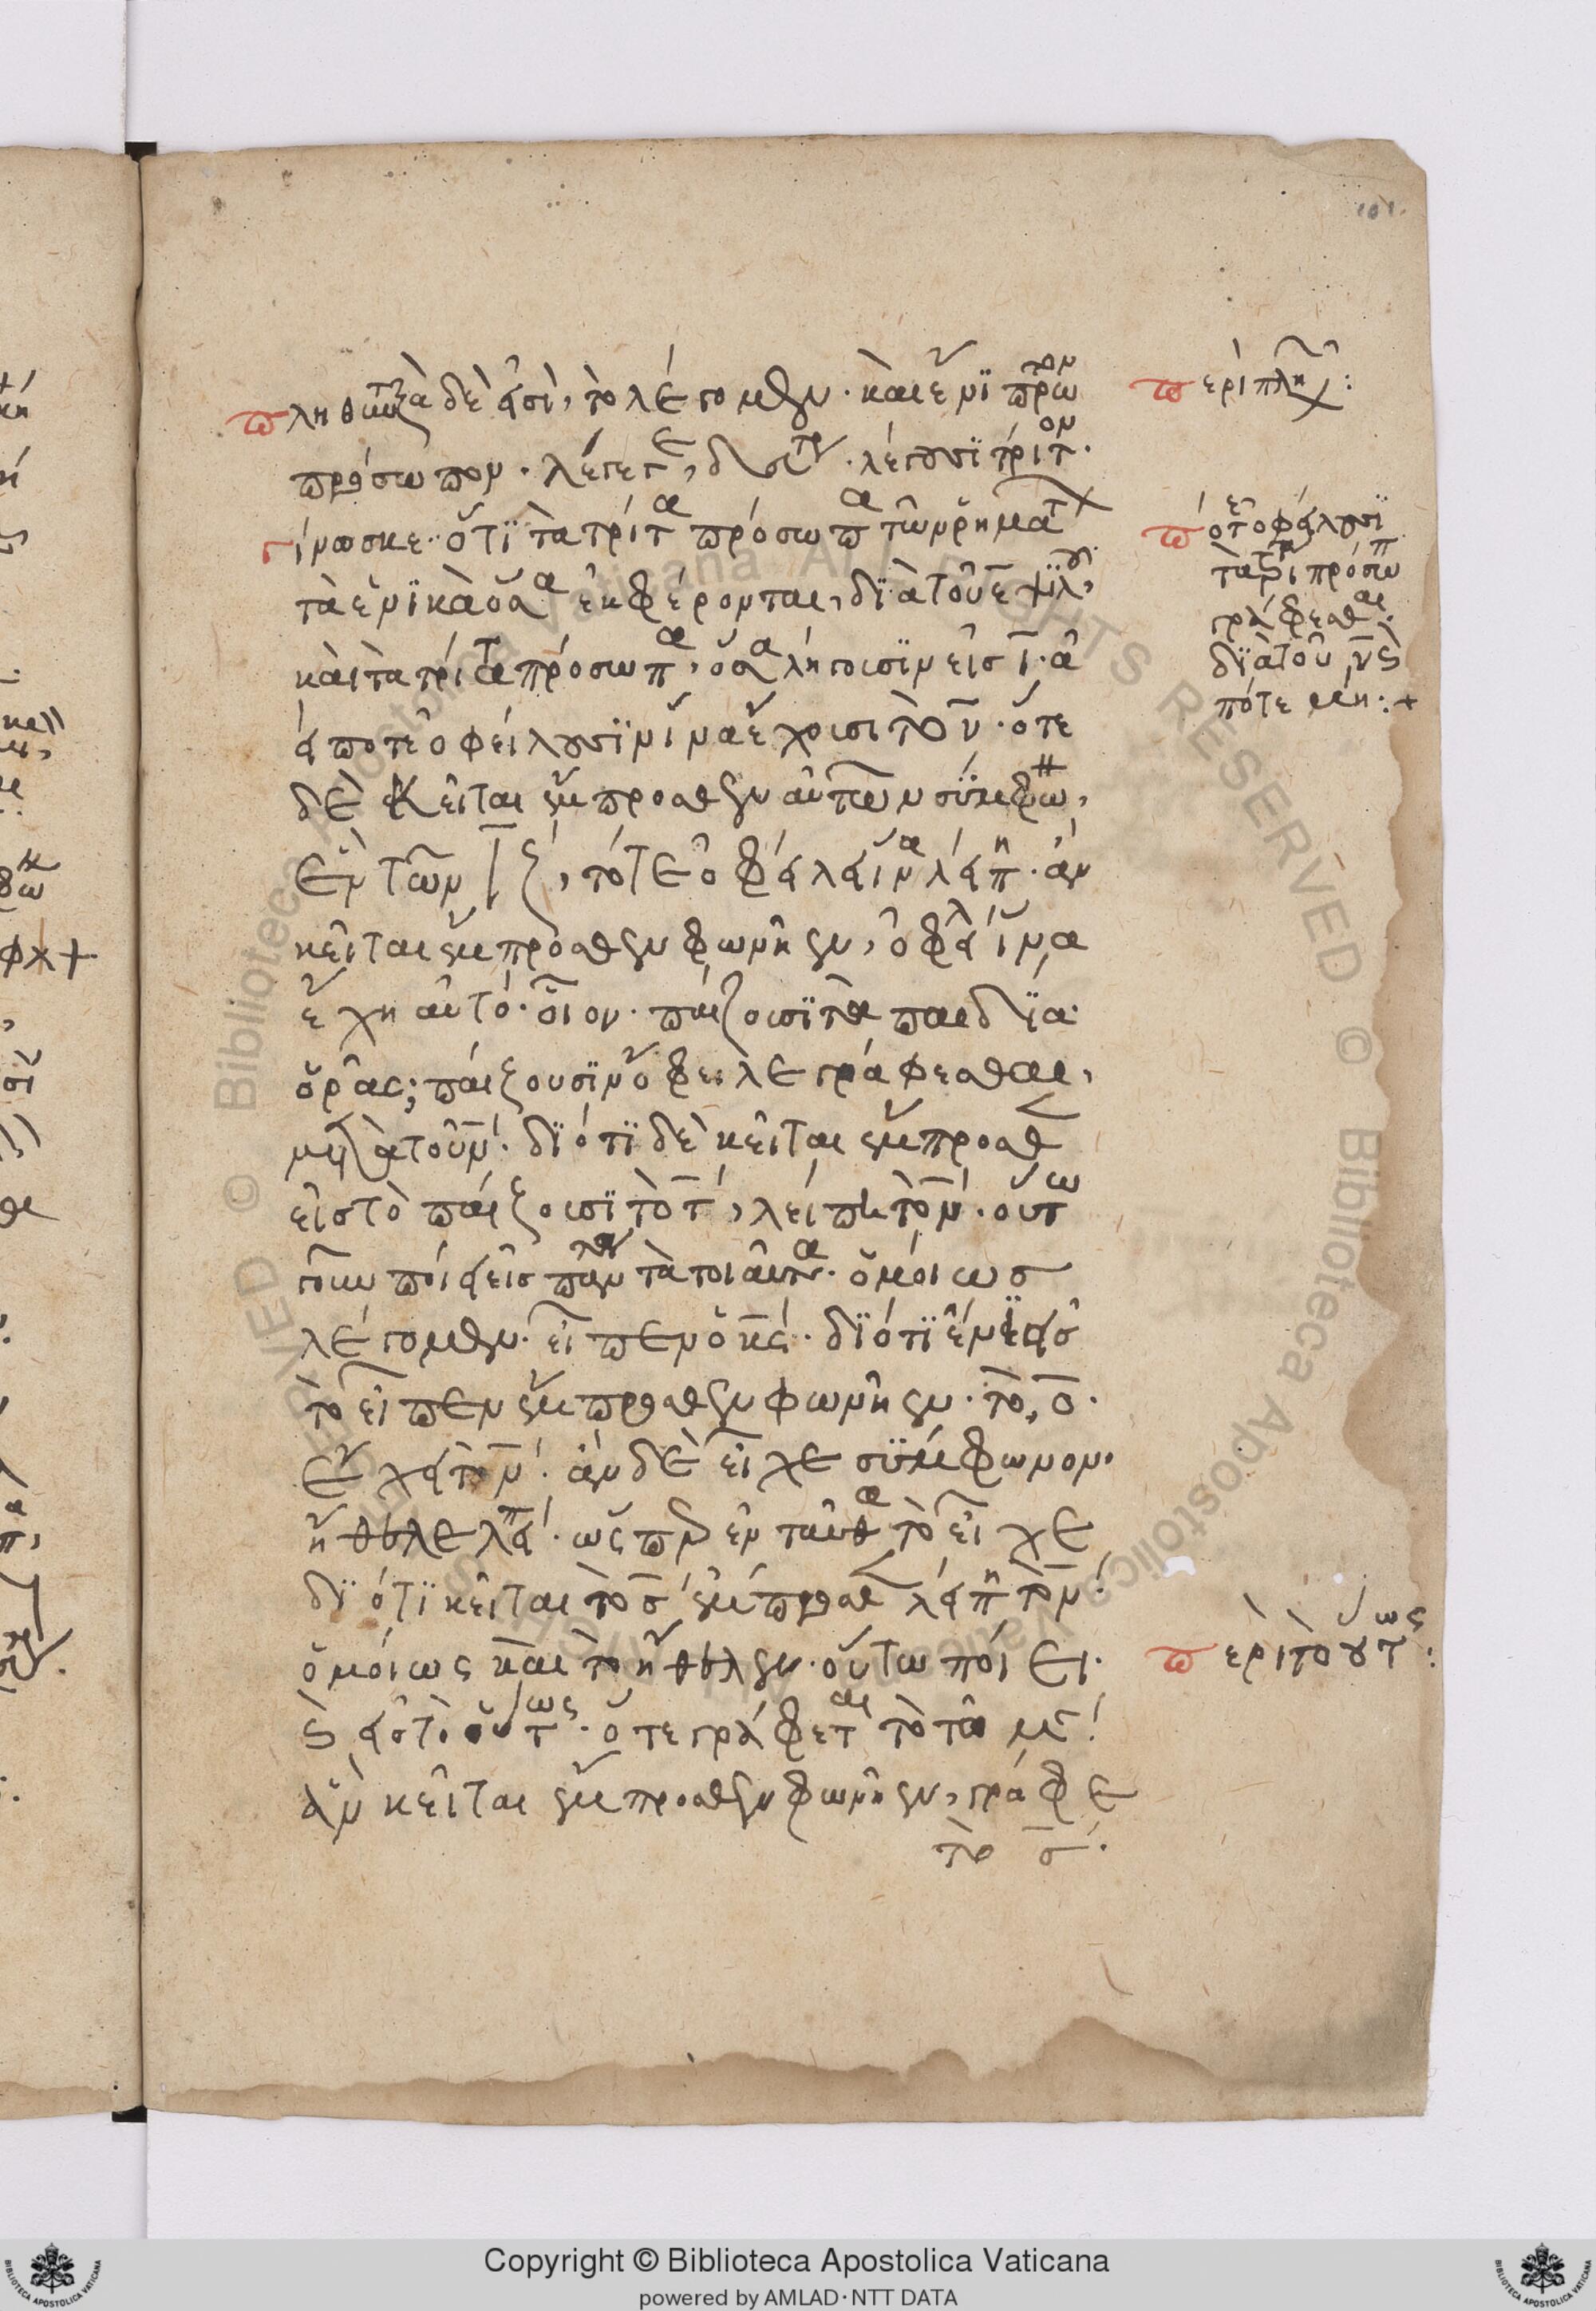 101
πληθυντικὰ δὲ ἐστὶ, τὸ λέγομεν· καὶ ἔνι πρῶτον
πρόσωπον· λέγετε, δεύτερον· λέγουσϊ τρίτον·
γίνωσκε· ὅτϊ τὰ τρίτα πρόσωπα τῶν ρημάτων
τὰ ἑνϊκὰ ὅλα ἐκφέρονται, δϊὰ τοῦ ε ψϊλοῦ,
καὶ τὰ τρίτα πρόσωπα, ὅσα λήγοισϊν εἰς ϊ· ἂ
ποτὲ ὀφείλουσϊν ἵνα ἔχοισι τὸ ν· ὅτε
δὲ κεῖται ἔμπροσθεν αὐτῶν σύμφωνον,
τότε ὀφείλει ἵνα λείπη· ἂν
κεῖται ἔμπροσθεν φωνῆεν, ὀφείλει ἵνα
ἔχη αὐτό· οἷον· παίζοισϊ τὰ παιδϊα·
ὅρᾶς; παίζουσϊν ὄφειλε γράφεσθαι,
μετὰ τοῦ ν· δϊότϊ δὲ κεῖται ἔμπροσθεν
εἰς τὸ παίζοισϊ τὸ τ, λείπει τὸ ν· οὕτω
ποίησεις πάντα τὰ τοιαῦτα· ὁμοίως
λέγομεν· εἶπεν ὁ κς· δϊότϊ
τὸ εἶπεν ἔμπροσθεν φωνῆεν· τὸ, ο·
ἔχει τὸ ν· ἂν δὲ εἶχε σύμφωνον·
ἤθελε λείπει· ὥσπερ ἐνταῦθα τὸ εἶχε
δϊότϊ κεῖται τὸ σ ἔμπροσθεν λείπη τὸ ν·
ὁμοίως καὶ τὸ ἤθελεν· οὕτω ποίει·
ἐστὶ οὕτως· ὅτε γράφεται τὸ
ἂν κεῖται ἔμπροσθεν φωνῆεν, γράφε
τὸ σ·
περὶ πληθ:
πότε ὀφείλουσϊ
τὰ τρίτα πρόσωπα
γράφεσθαι
δϊὰ τοῦ ν καὶ
πότε μή:+
περὶ τοῦ οὕτως:
Copyright © Biblioteca Apostolica Vaticana
powered by AMLAD·NTT DATA